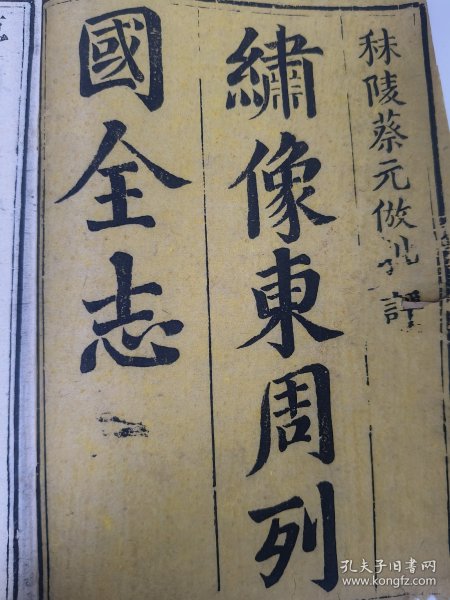 秣陵蔡元倣批評
繡像東周列
國全志
孔夫子旧书网
www.kongfz.com